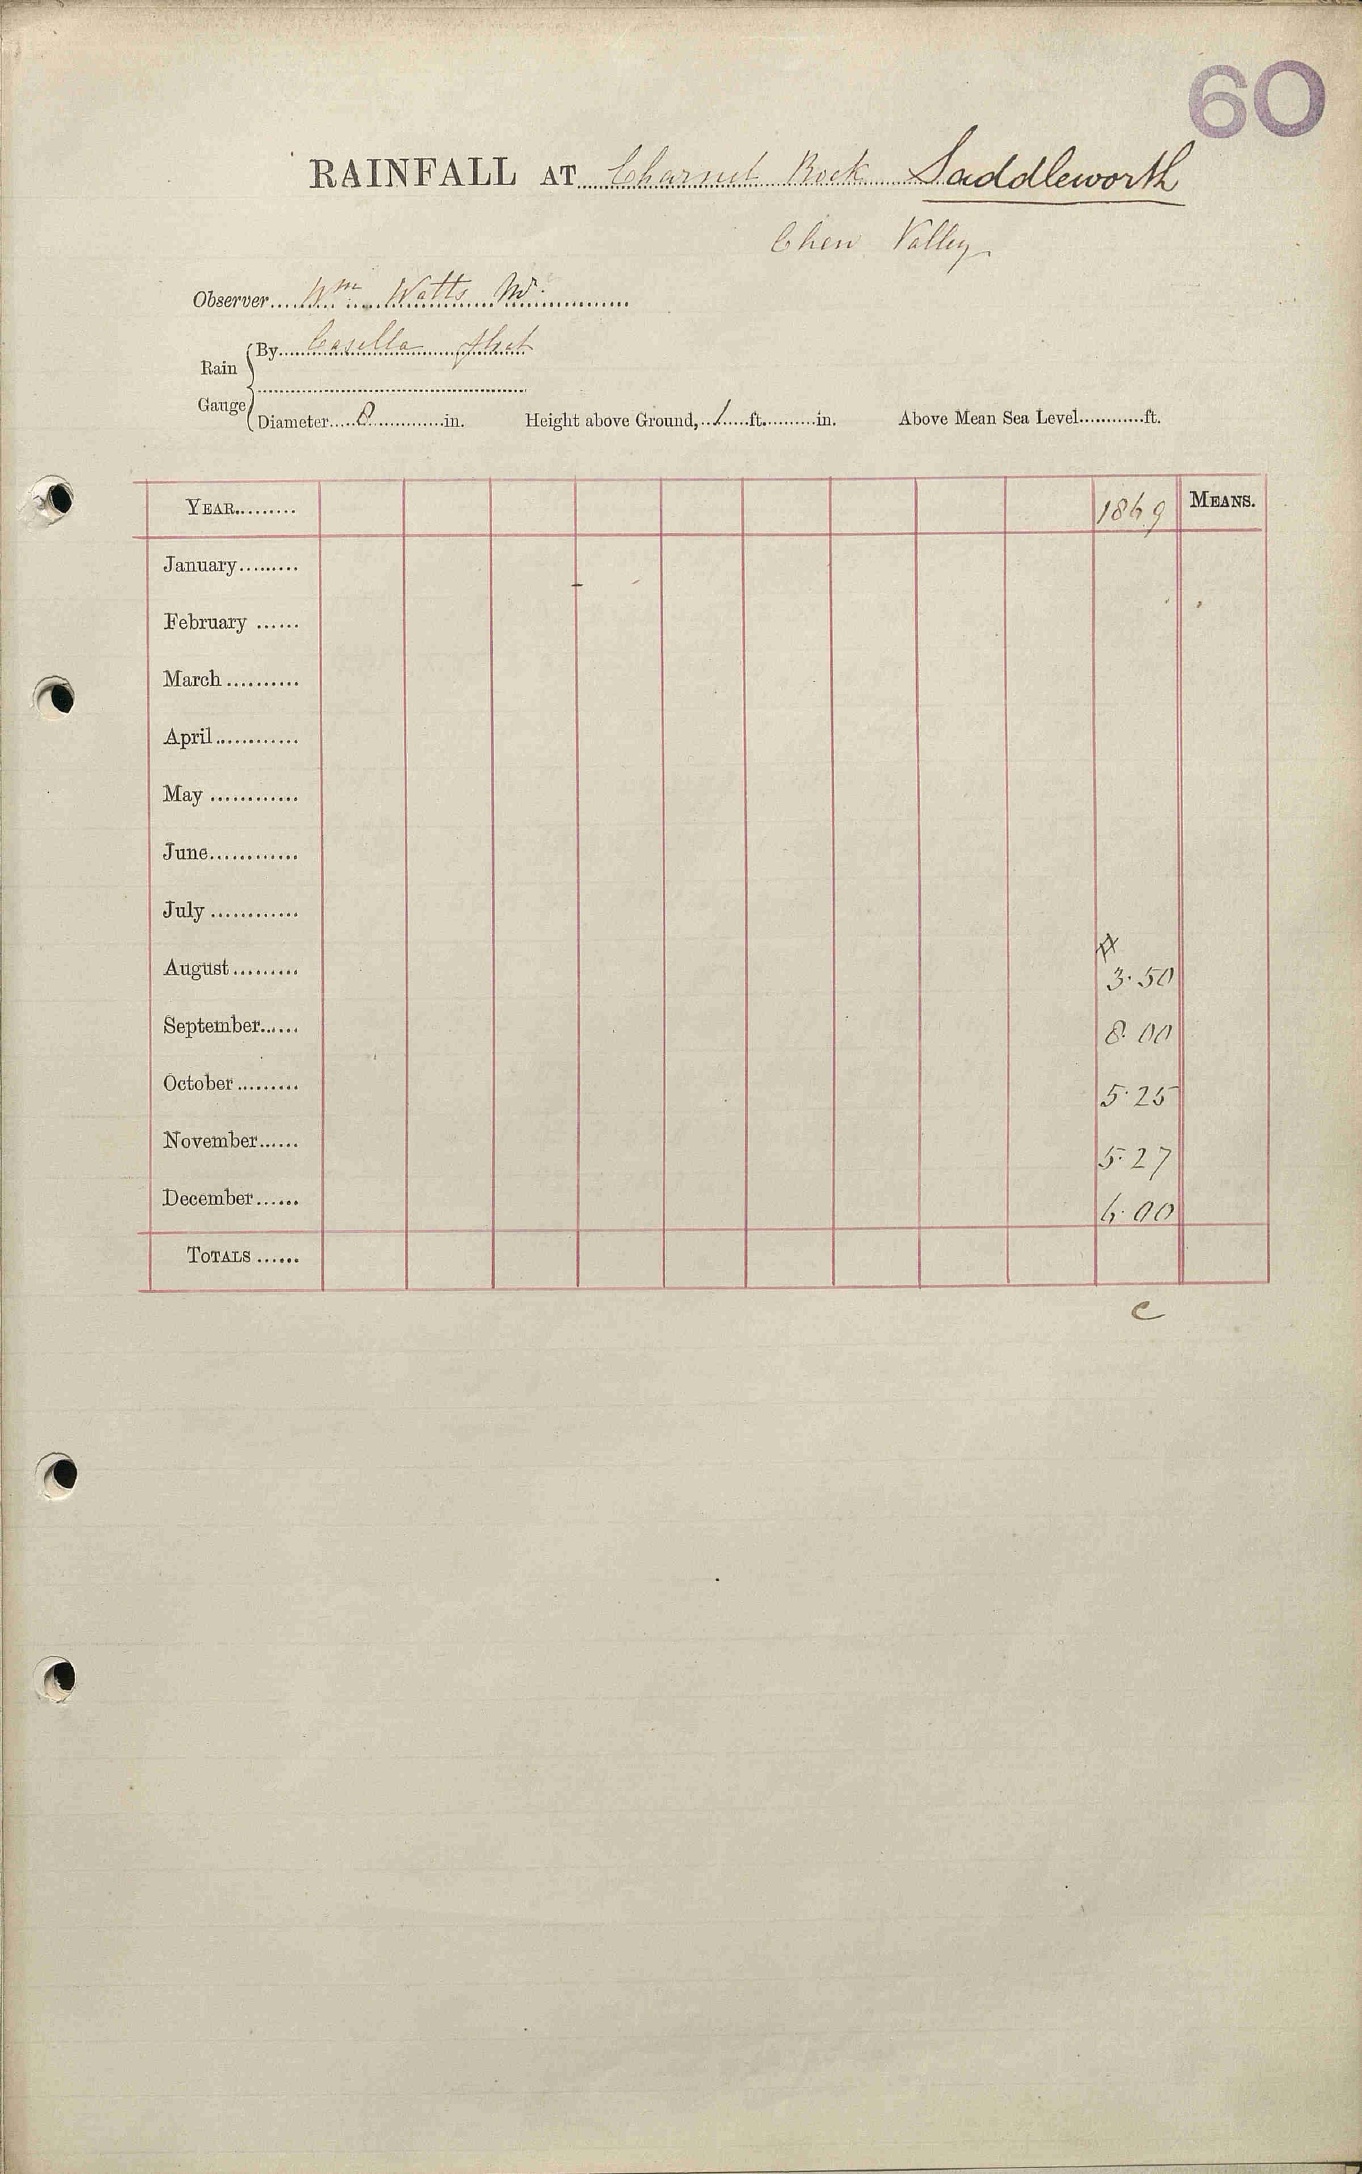 60
RAINFALL AT Charnel Rock Saddleworth
Chew Valley
Observer Wm Watts
Rain Gauge
By Casella float
Diameter 8 in. Height above Ground, 1 ft. in. Above Mean Sea Level ft.
YEAR 1869 MEANS.
January
February
March
April
May
June
July
August 3.50
September 8.00
October 5.25
November 5.27
December 6.00
TOTALS
c